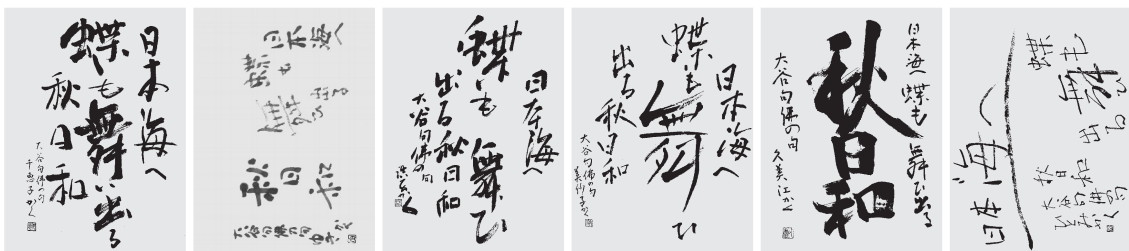 日本海へ
蝶も舞い出る
秋日和
大谷句佛の句
千恵子かく
日本海へ
蝶も
舞ひ出る
秋日和
大谷句佛の句
日本海へ
蝶も舞ひ
出る秋日和
大谷句佛の句
日本海へ
蝶も舞ひ
出る秋日和
大谷句佛の句
美沙子かく
日本海へ蝶も舞ひ出る
秋日和
大谷句佛の句 久美江かく
蝶も
舞ひ
出る
秋日和
大谷句佛の句
日本海へ